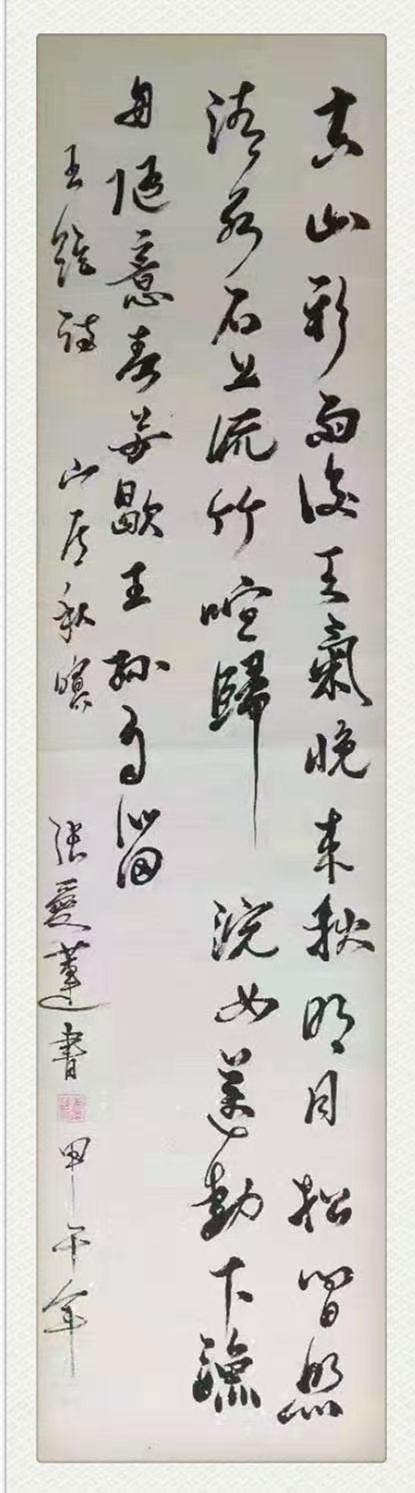 空山新雨後天氣晚来秋明月松間照
清泉石上流竹喧歸浣女蓮動下漁
舟隨意春芳歇王孫自可留
王維詩 山居秋暝 張愛蓮書 甲午年